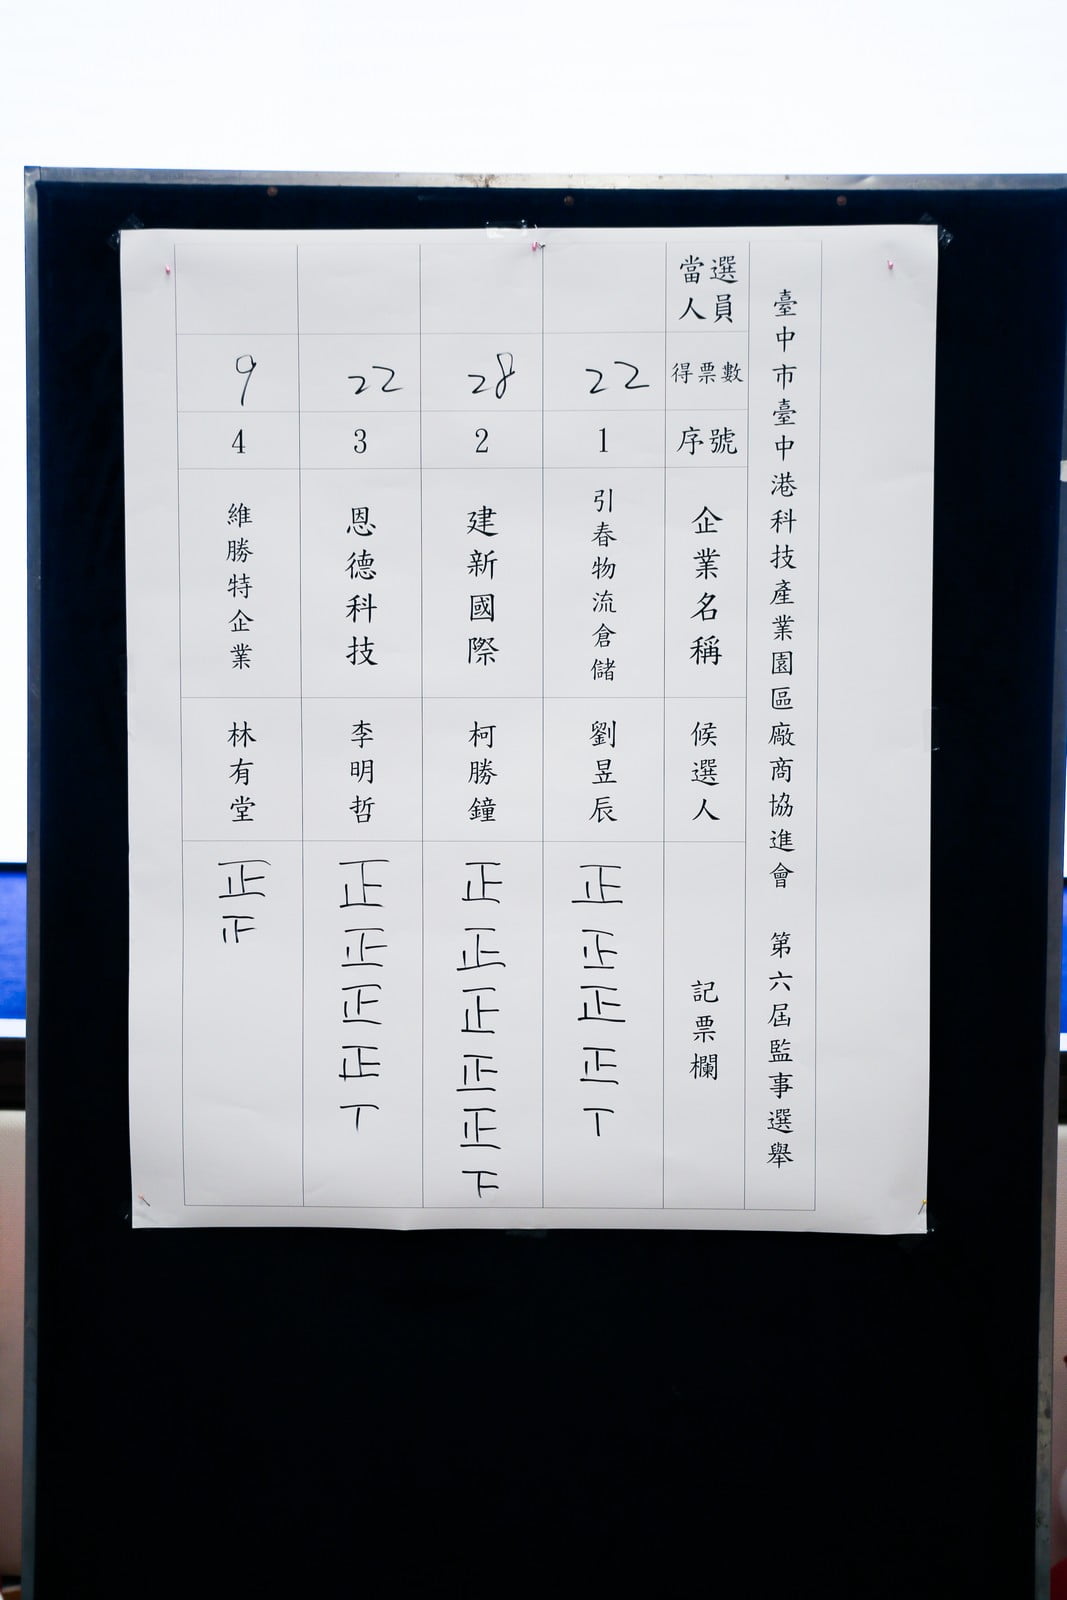 臺中市臺中港科技產業園區廠商協進會 第六屆監事選舉
當選人員
得票數
序號
企業名稱
候選人
記票欄
22
1
引春物流倉儲
劉昱辰
正正正正丅
28
2
建新國際
柯勝鐘
正正正正正下
22
3
恩德科技
李明哲
正正正正丅
9
4
維勝特企業
林有堂
正正